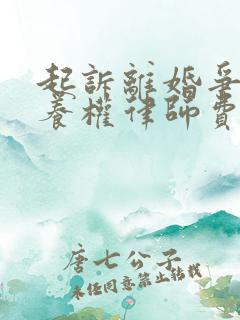 起訴離婚爭
養權律師費
唐七公子
未經同意禁止轉載